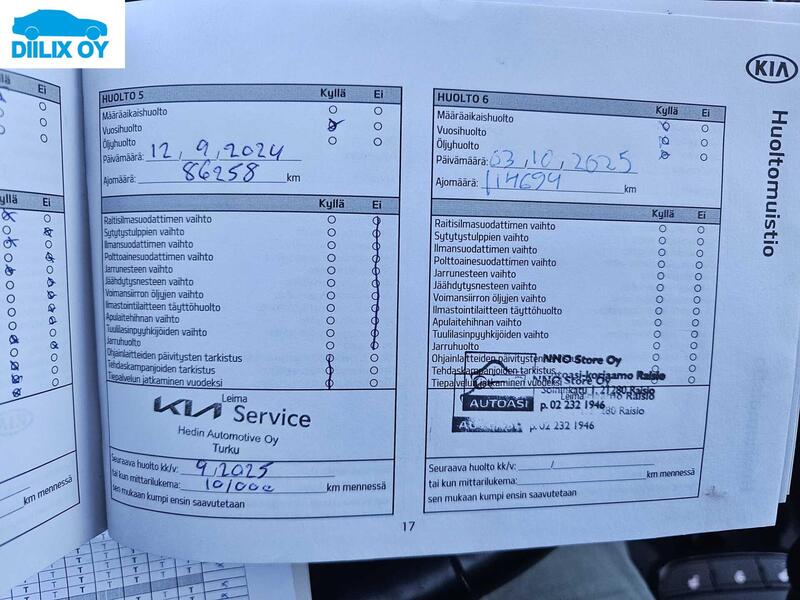 DIILIX OY
KIA
Huoltomuistio
Kyllä Ei
km mennessä
HUOLTO 5 Kyllä Ei
Määräaikaishuolto
Vuosihuolto
Öljyhuolto
Päivämäärä: 12, 9, 2024
Ajomäärä: 86258 km
Kyllä Ei
Raitisilmasuodattimen vaihto
Sytytystulppien vaihto
Ilmansuodattimen vaihto
Polttoainesuodattimen vaihto
Jarrunesteen vaihto
Jäähdytysnesteen vaihto
Voimansiirron öljyjen vaihto
Ilmastointilaitteen täyttöhuolto
Apulaitehihnan vaihto
Tuulilasinpyyhkijöiden vaihto
Jarruhuolto
Ohjainlaitteiden päivitysten tarkistus
Tehdaskampanjoiden tarkistus
Tiepalvelun jatkaminen vuodeksi
Leima
KIA Service
Hedin Automotive Oy
Turku
Seuraava huolto kk/v: 9, 2025
tai kun mittarilukema: 101000 km mennessä
sen mukaan kumpi ensin saavutetaan
HUOLTO 6 Kyllä Ei
Määräaikaishuolto
Vuosihuolto
Öljyhuolto
Päivämäärä: 03, 10, 2025
Ajomäärä: 114694 km
Kyllä Ei
Raitisilmasuodattimen vaihto
Sytytystulppien vaihto
Ilmansuodattimen vaihto
Polttoainesuodattimen vaihto
Jarrunesteen vaihto
Jäähdytysnesteen vaihto
Voimansiirron öljyjen vaihto
Ilmastointilaitteen täyttöhuolto
Apulaitehihnan vaihto
Tuulilasinpyyhkijöiden vaihto
Jarruhuolto
Ohjainlaitteiden päivitysten
NNO Store Oy
Tehdaskampanjoiden tarkistus
Autoasi-korjaamo Raisio
Tiepalvelun jatkaminen vuodeksi
NNO Store Oy
1, 21280 Raisio
Leima
Raisio
AUTOASI
p. 02 232 1946
Raisio
p. 02 232 1946
Seuraava huolto kk/v: /
tai kun mittarilukema: km mennessä
sen mukaan kumpi ensin saavutetaan
17